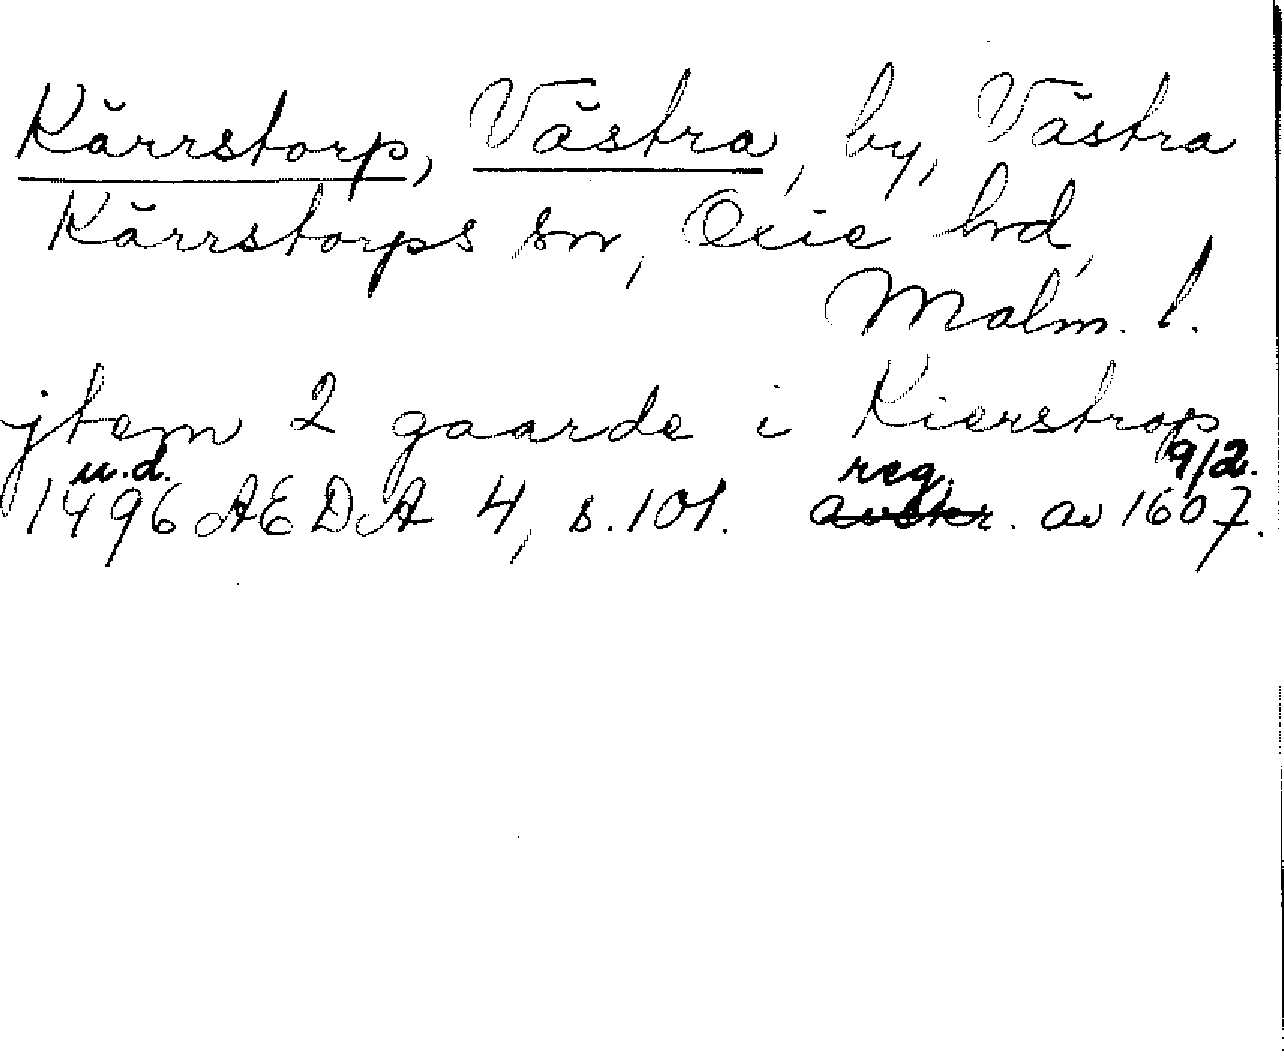 Kärrstorp, Västra, by, Västra
Kärrstorps sn, Oxie hd,
Malm. l.
jtem 2 gaarde i Kierstrop
u.d. reg. 9/2.
1496 AEDA 4, s. 101. avskr. av 1607.